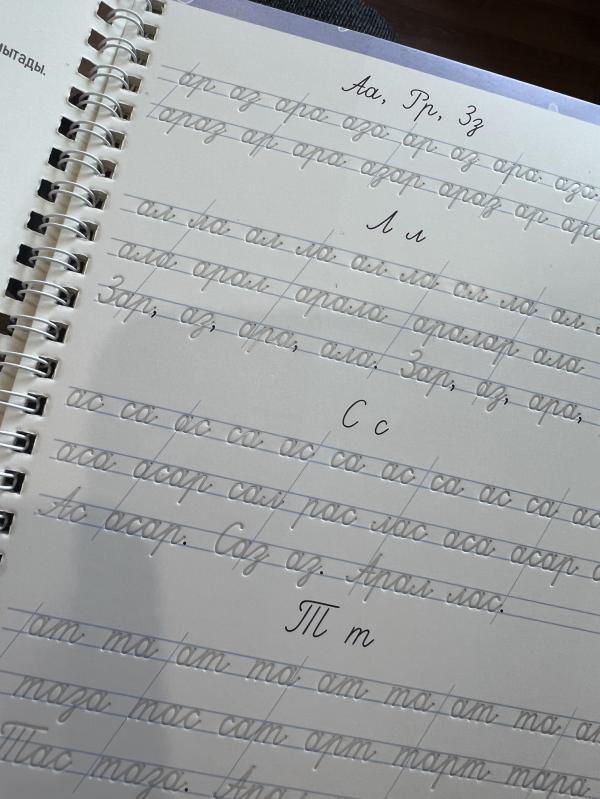 Аа, Рр, Зз
ар аз ара аза ар аз ара аза
араз ар ара азар араз ар
Л л
ал ла ал ла ал ла ал ла ал
ала арал арала аралар ала
Зар, аз, ара, ала. Зар, аз, ара,
С с
ас са ас са ас са ас са ас са ас
аса асар сал рас лас аса асар
Ас асар. Саз аз. Арал лас.
Т т
ат та ат та ат та ат та ат та
таза тас сат арт тарт тара
Тас таза.